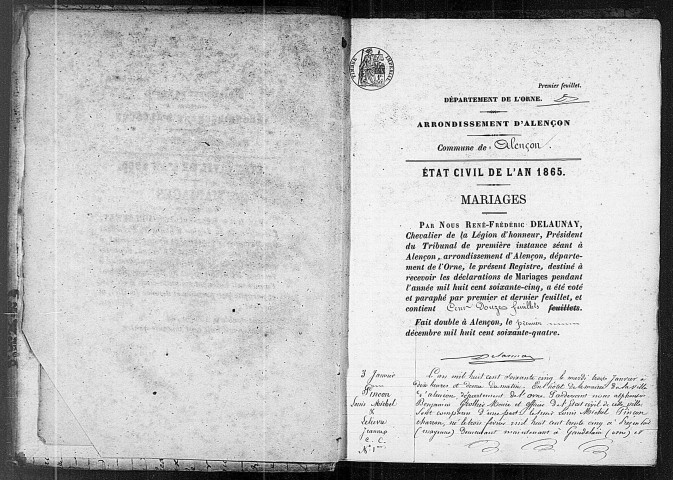 TIMBRE IMPÉRIAL
Premier feuillet.
DÉPARTEMENT DE L'ORNE.
ARRONDISSEMENT D'ALENÇON
Commune de Alençon.
ÉTAT CIVIL DE L'AN 1865.
MARIAGES
PAR NOUS RENÉ-FRÉDÉRIC DELAUNAY,
Chevalier de la Légion d'honneur, Président
du Tribunal de première instance séant à
Alençon, arrondissement d'Alençon, départe-
ment de l'Orne, le présent Registre, destiné à
recevoir les déclarations de Mariages pendant
l'année mil huit cent soixante-cinq, a été coté
et paraphé par premier et dernier feuillet, et
contient Cent Douze feuillets feuillets.
Fait double à Alençon, le premier
décembre mil huit cent soixante-quatre.
Delaunay
3 Janvier
Pinçon
Louis Michel
&
Jeanne
C. C.
N° 1er
L'an mil huit cent soixante cinq le mardi trois Janvier à
dix heures et demie du matin. En l'hôtel de la mairie de la ville
d'alençon département de l'orne. Pardevant nous
Benjamin Grollier Maire et officier de l'état civil de cette ville
Sont comparus d'une part le sieur Louis Michel Pinçon
charron, né le trois février mil huit cent trente cinq à
(mayenne) Demeurant maintenant à Gandelain (orne) et